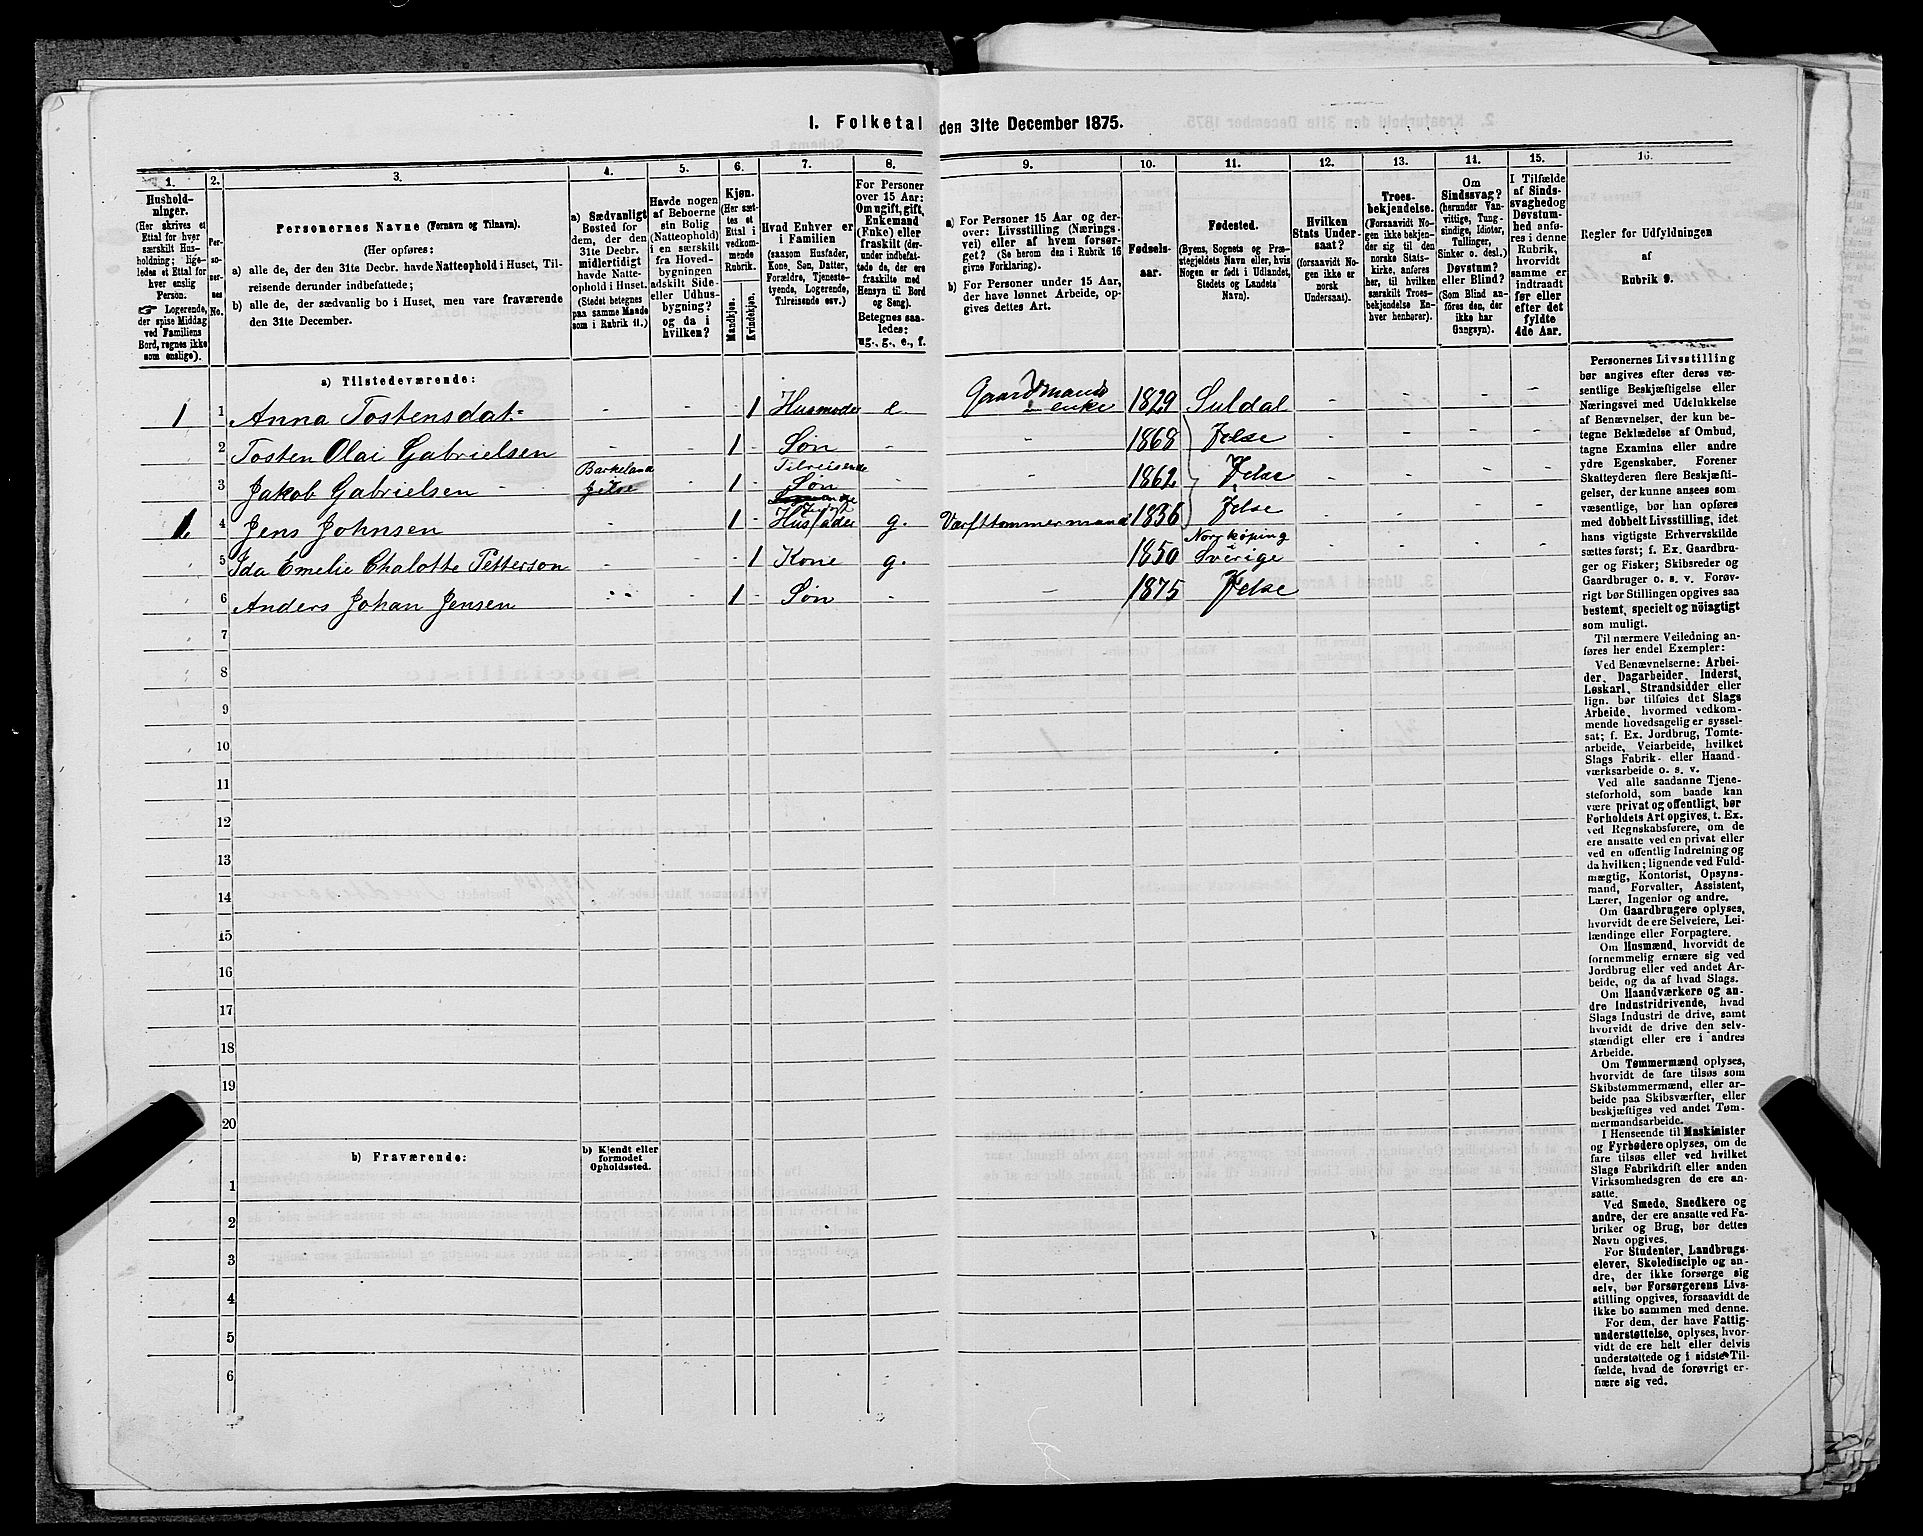 I. Folketal den 31te December 1875.
1.
2.
3.
4.
5.
6.
7.
8.
9.
10.
11.
12.
13.
14.
15.
16.
Hushold-
ninger.
(Her skrives et
Ettal for hver
særskilt Hus-
holdning; lige-
ledes et Ettal for
hver enslig
Person.
☞ Logerende,
der spise Middag
ved Familiens
Bord, regnes ikke
som enslige).
Per-
so-
ner-
nes
No.
Personernes Navne (Fornavn og Tilnavn).
(Her opføres:
a) alle de, der den 31te Decbr. havde Natteophold i Huset, Til-
reisende derunder indbefattede;
b) alle de, der sædvanlig bo i Huset, men vare fraværende
den 31te December.
a) Sædvanligt
Bosted for
dem, der den
31te Decbr.
midlertidigt
havde Natte-
ophold i Huset.
(Stedet betegnes
paa samme Maade
som i Rubrik 11.)
Havde nogen
af Beboerne
sin Bolig
(Natteophold)
i en særskilt
fra Hoved-
bygningen
adskilt Side-
eller Udhus-
bygning?
og da i
hvilken?
Kjøn.
(Her sæt-
tes et
Ettal i
vedkom-
mende
Rubrik.
Mandkjøn.
Kvindekjøn.
Hvad Enhver er
i Familien
(saasom Husfader,
Kone, Søn, Datter,
Forældre, Tjeneste-
tyende, Logerende,
Tilreisende osv.)
For Personer
over 15 Aar:
Om ugift, gift,
Enkemand
(Enke) eller
fraskilt (der-
under indbefat-
tede de, der ere
fraskilte med
Hensyn til Bord
og Seng).
Betegnes saa-
ledes:
ug., g., e., f.
a) For Personer 15 Aar og der-
over: Livsstilling (Nærings-
vei) eller af hvem forsør-
get? (Se herom den i Rubrik 16
givne Forklaring).
b) For Personer under 15 Aar,
der have lønnet Arbeide, op-
gives dettes Art.
Fødsels-
aar.
Fødested.
(Byens, Sognets og Præ-
stegjeldets Navn eller, hvis
Nogen er født i Udlandet,
Stedets og Landets
Navn).
Hvilken
Stats Under-
saat?
(forsaavidt No-
gen ikke er
norsk
Undersaat).
Troes-
bekjendelse.
(Forsaavidt No-
gen ikke bekjen-
der sig til den
norske Stats-
kirke, anføres
her, til hvilken
særskilt Troes-
bekjendelse En-
hver henhører).
Om
Sindssvag?
(herunder Van-
vittige, Tung-
sindige, Idioter,
Tullinger,
Sinker o. desl.)
Døvstum?
eller Blind?
(Som Blind an-
føres den, der
ikke har
Gangsyn).
I Tilfælde
af Sinds-
svaghed og
Døvstum-
hed anfø-
res i denne
Rubrik,
hvorvidt
samme er
indtraadt
før eller
efter det
fyldte
4de Aar.
Regler for Udfyldningen
af
Rubrik 9.
a) Tilstedeværende:
1 1 Anna Tostensdat= - - 1 Husmoder e Gaardmands enke 1829 Suldal - - - -
2 Tosten Olai Gabrielsen - - 1 - Søn - - 1868 Jelse - - - -
3 Jakob Gabrielsen - Barkeland Jelse - 1 - Tilreisende Søn - - 1862 Jelse - - - -
1. 4 Jens Johnsen - - 1 - Husfader g. Værfttømmermand 1836 Jelse - - - -
5 Ida Emelie Chalotte Petterson - - - 1 Kone g. 1850 Norrköping Sverige - - - -
6 Anders Johan Jensen - - 1 - Søn - - 1875 Jelse
7
8
9
10
11
12
13
14
15
16
17
18
19
20
b) Fraværende:
b) Kjendt eller
formodet
Opholdssted.
1
2
3
4
5
6
Personernes Livsstilling
bør angives efter deres væ-
sentlige Beskjæftigelse eller
Næringsvei med Udelukkelse
af Benævnelser, der kun be-
tegne Beklædelse af Ombud,
tagne Examina eller andre
ydre Egenskaber. Forener
Skatteyderen flere Beskjæfti-
gelser, der kunne ansees som
væsentlige, bør han opføres
med dobbelt Livsstilling, idet
hans vigtigste Erhvervskilde
sættes først; f. Ex. Gaardbru-
ger og Fisker; Skibsreder og
Gaardbruger o. s. v. Forøv-
rigt bør Stillingen opgives saa
bestemt, specielt og nøiagtigt
som muligt.
Til nærmere Veiledning an-
føres her endel Exempler:
Ved Benævnelserne: Arbei-
der, Dagarbeider, Inderst,
Løskarl, Strandsidder eller
lign. bør tilføies det Slags
Arbeide, hvormed vedkom-
mende hovedsagelig er syssel-
sat; f. Ex. Jordbrug, Tomte-
arbeide, Veiarbeide, hvilket
Slags Fabrik- eller Haand-
værksarbeide o. s. v.
Ved alle saadanne Tjene-
steforhold, som baade kan
være privat og offentligt, bør
Forholdets Art opgives, t. Ex.
ved Regnskabsførere, om de
ere ansatte ved en privat eller
ved en offentlig Indretning og
da hvilken; lignende ved Fuld-
mægtig, Kontorist, Opsyns-
mand, Forvalter, Assistent,
Lærer, Ingeniør og andre.
Om Gaardbrugere oplyses,
hvorvidt de ere Selveiere, Lei-
lændinge eller Forpagtere.
Om Husmænd, hvorvidt de
fornemmelig ernære sig ved
Jordbrug eller ved andet Ar-
beide, og da af hvad Slags.
Om Haandværkere og an-
dre Industridrivende, hvad
Slags Industri de drive, samt
hvorvidt de drive den selv-
stændigt eller ere i andres
Arbeide.
Om Tømmermænd oplyses,
hvorvidt de fare tilsøs som
Skibstømmermænd, eller ar-
beide paa Skibsværfter, eller
beskjæftiges ved andet Tøm-
mermandsarbeide.
I Henseende til Maskinister
og Fyrbødere oplyses, om de
fare tilsøs eller ved hvilket
Slags Fabrikdrift eller anden
Virksomhedsgren de ere an-
satte.
Ved Smede, Snedkere og
andre, der ere ansatte ved Fa-
briker og Brug, bør dettes
Navn opgives.
For Studenter, Landbrugs-
elever, Skoledisciple og an-
dre, der ikke forsørge sig
selv, bør Forsørgerens Livs-
stilling opgives, forsaavidt de
ikke bo sammen med denne.
For dem, der have Fattig-
understøttelse, oplyses, hvor-
vidt de ere helt eller delvis
understøttede og i sidste Til-
fælde, hvad de forøvrigt er-
nære sig ved.